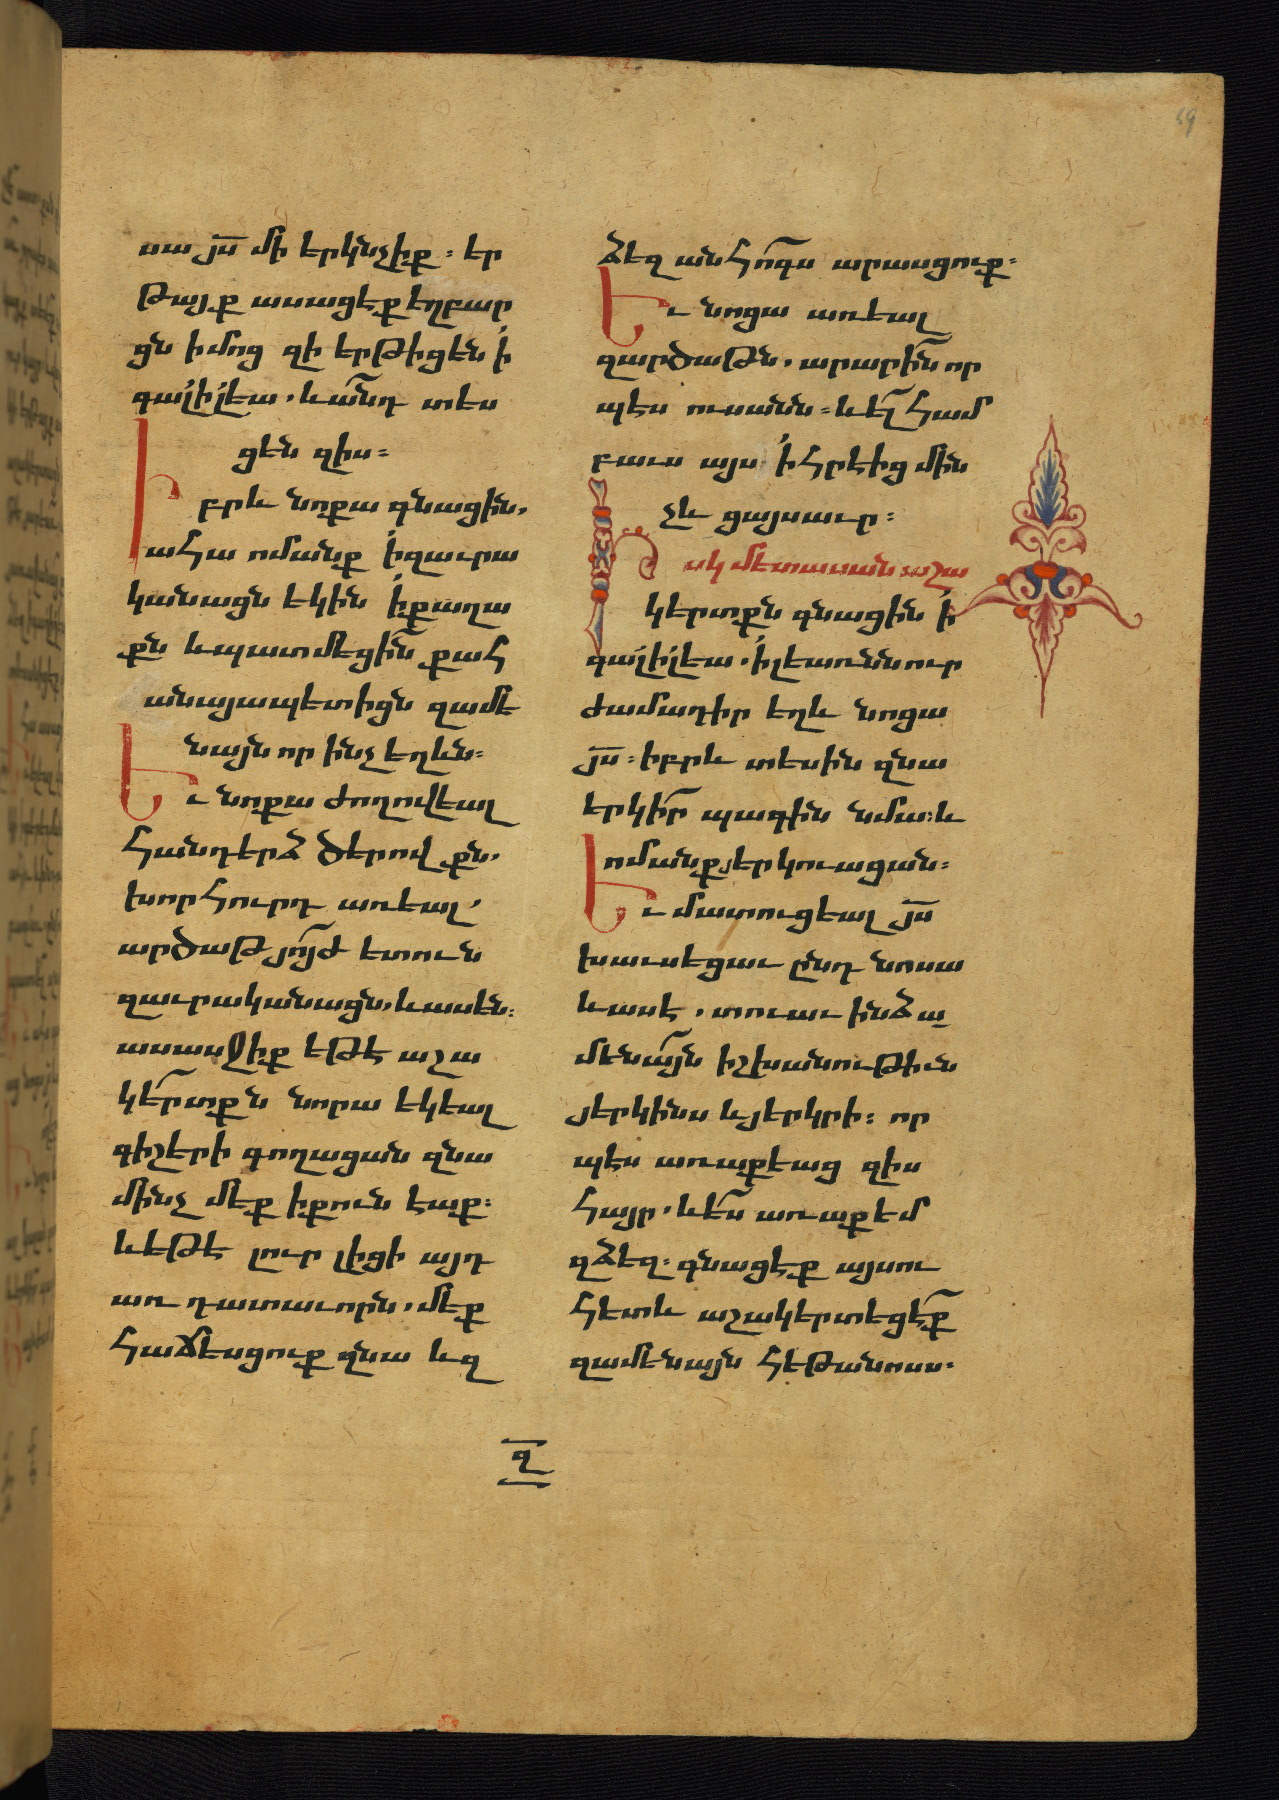 սա յս մի երկնչիք։ եր
թայք ասացէք եղբար
ցն իմոց զի երթիցեն ի
գալիլեա, և անդ տես
ցեն զիս։
Իբրև նոքա գնացին,
ահա ոմանք ի զաւրա
կանացն եկին ի քաղա
քն և պատմեցին քահ
անայապետիցն զամե
նայն որ ինչ եղևն։
Եւ նոքա ժողովեալ
հանդերձ ծերովքն,
խորհուրդ առեալ,
արծաթ յոյժ ետուն
զաւրականացն, և ասեն։
ասասջիք եթէ աշա
կերտքն նորա եկեալ
գիշերի գողացան զնա
մինչ մեք ի քուն էաք։
և եթէ լուր լիցի այդ
առ դատաւորն, մեք
հաճեսցուք զնա և զ
ձեզ անհոգս արասցուք։
Եւ նոցա առեալ
զարծաթն, արարին որ
պէս ուսանն։ և ել համ
բաւս այս ի հրէից մին
չև ցայսաւր։
Իսկ մետասան աշա
կերտքն գնացին ի
գալիլեա, ի լեառնն ուր
ժամադիր եղև նոցա
յս։ իբրև տեսին զնա
երկիր պագին նմա։ և
ոմանք յերկուացան։
Եւ մատուցեալ յս
խաւսեցաւ ընդ նոսա
և ասէ, տուաւ ինձ ա
մենայն իշխանութիւն
յերկինս և յերկրի։ որ
պէս առաքեաց զիս
հայր, և ես առաքեմ
զձեզ։ գնացէք այսու
հետև աշակերտեցէք
զամենայն հեթանոսս.
զ
59